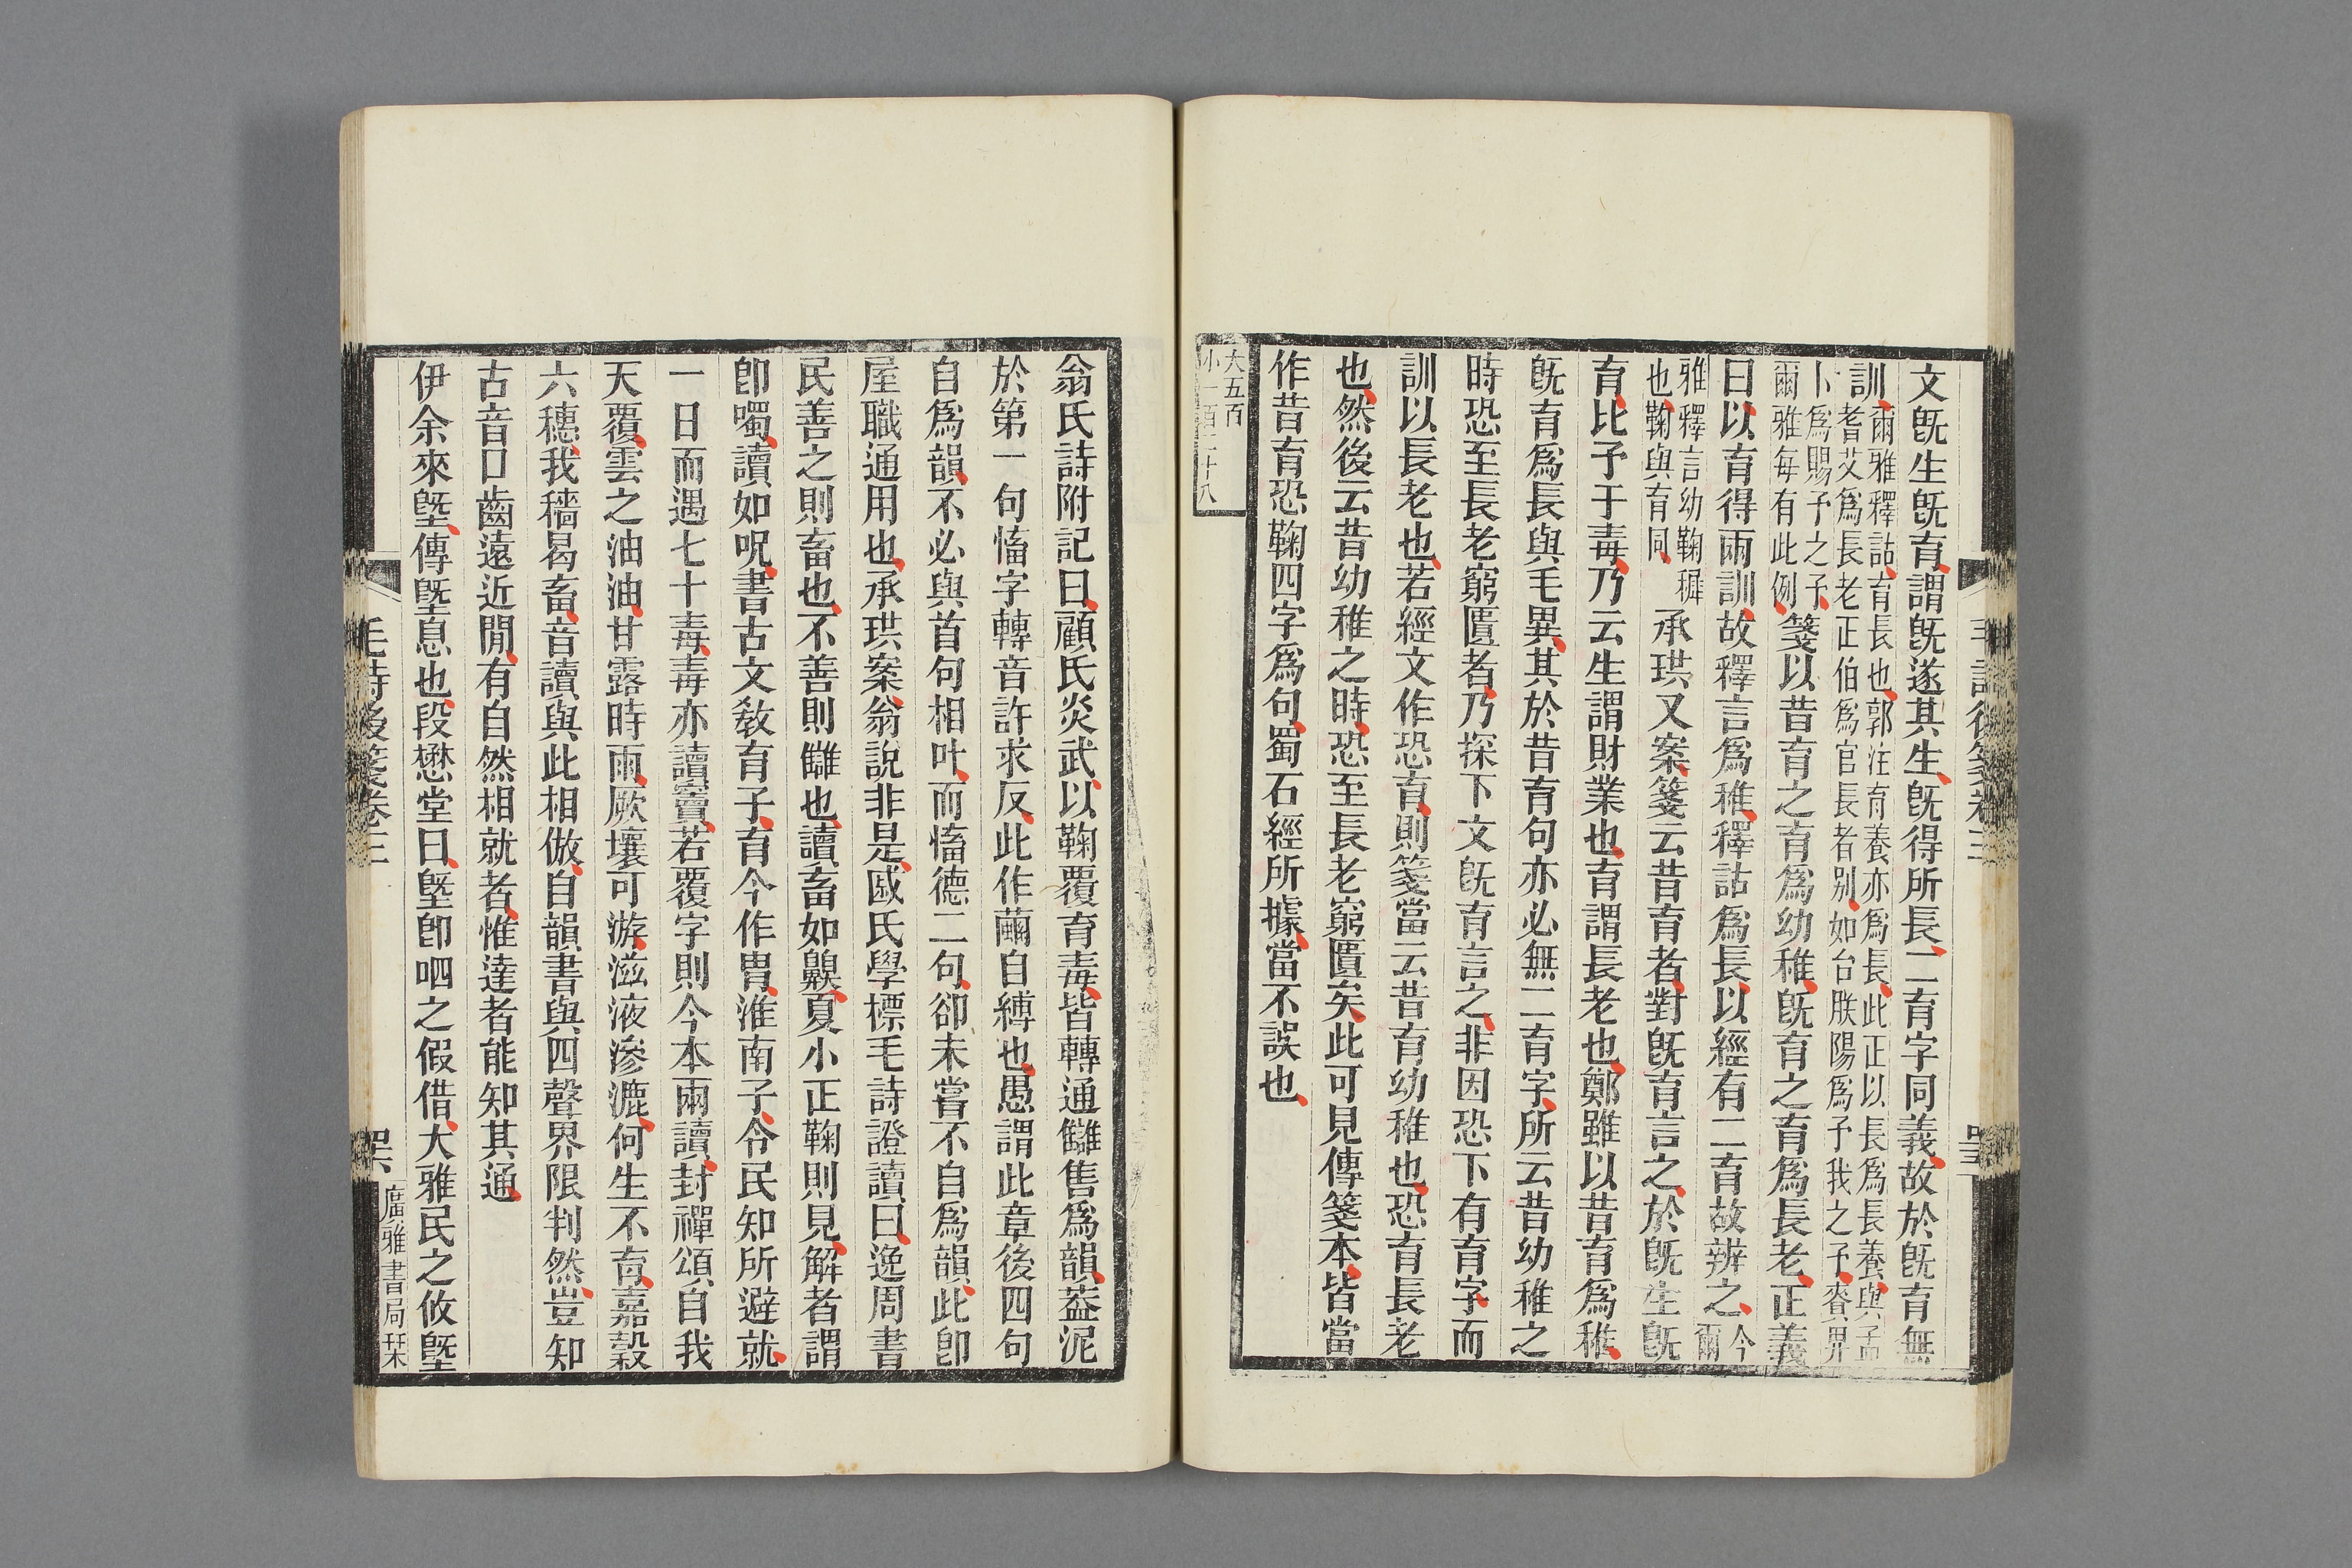 文旣生旣育謂旣遂其生旣得所長二育字同義故於旣育無
訓爾雅釋詁育長也郭注育養亦爲長此正以長爲長養與孟
耆艾爲長老正伯爲官長者别如台朕陽爲予我之予賚畀
卜爲賜予之予
爾雅每有此例箋以昔育之育爲幼稚旣育之育爲長老正義
曰以育得兩訓故釋言爲稚釋詁爲長以經有二育故辨之今
爾
雅釋言幼鞠穉
也鞠與育同承珙又案箋云昔育者對旣育言之於旣生旣
育比予于毒乃云生謂財業也育謂長老也鄭雖以昔育爲稚
旣育爲長與毛異其於昔育句亦必無二育字所云昔幼稚之
時恐至長老窮匱者乃探下文旣育言之非因恐下有育字而
訓以長老也若經文作恐育則箋當云昔育幼稚也恐育長老
也然後云昔幼稚之時恐至長老窮匱矣此可見傳箋本皆當
作昔育恐鞠四字爲句蜀石經所據當不誤也
大五百
小一百二十八
翁氏詩附記曰顧氏炎武以鞠覆育毒皆轉通讎售爲韻葢泥
於第一句慉字轉音許求反此作薾自縛也愚謂此章後四句
自爲韻不必與首句相叶而慉德二句卻未嘗不自爲韻此卽
屋職通用也承珙案翁說非是戚氏學標毛詩證讀曰逸周書
民善之則畜也不善則讎也讀畜如齅夏小正鞠則見解者謂
卽噣讀如呪書古文敎育子育今作胄淮南子令民知所避就
一日而遇七十毒毒亦讀竇若覆字則今本兩讀封禪頌自我
天覆雲之油油甘露時雨厥壤可游滋液滲漉何生不育嘉穀
六穗我穡曷畜音讀與此相倣自韻書與四聲界限判然豈知
古音口齒遠近閒有自然相就者惟達者能知其通
伊余來墍傳墍息也段懋堂曰墍卽呬之假借大雅民之攸墍
毛詩後箋卷三
廣雅書局栞